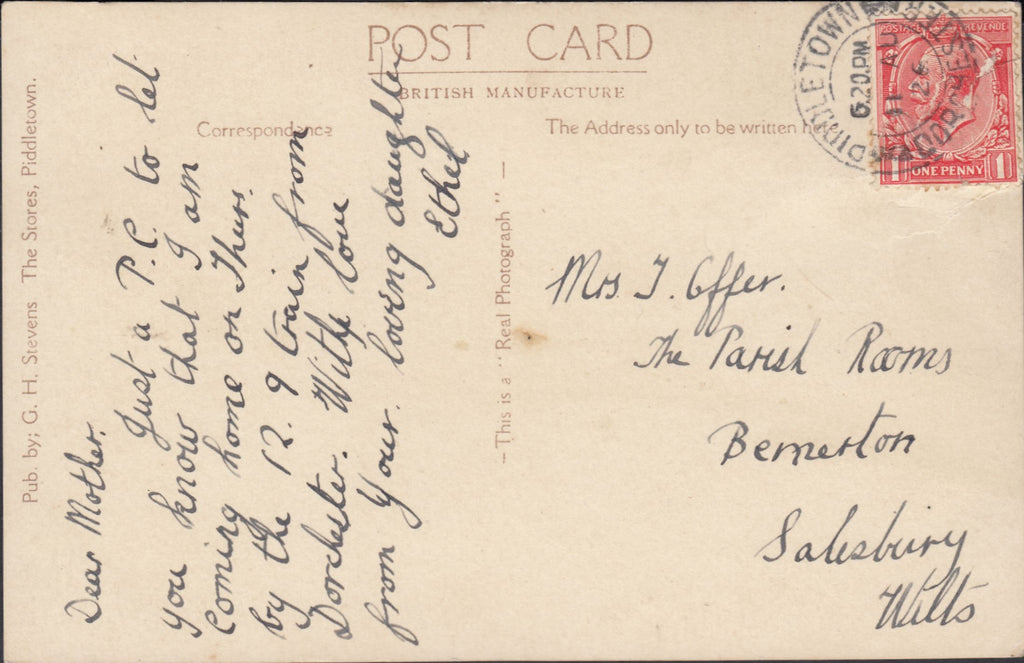 POST CARD
BRITISH MANUFACTURE
Correspondence
The Address only to be written
Pub. by; G. H. Stevens The Stores, Piddletown.
— This is a "Real Photograph" —
PIDDLETOWN
DORCHESTER
6.20 PM
11 AU
POSTAGE REVENUE
1 ONE PENNY 1
Dear Mother.
Just a P.C. to let
you know that I am
Coming home on Thurs.
by the 12.9 train from
Dorchester. With love
from your loving daughter
Ethel
Mrs. J. Offer.
The Parish Rooms
Bemerton
Salesbury
Wilts